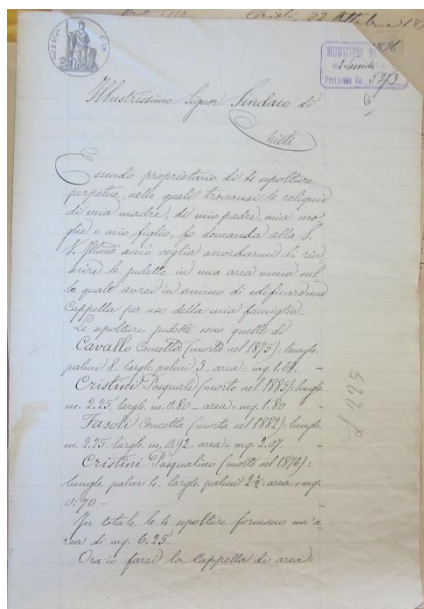 Chieti, 22 Ottobre 18
1896
MUNICIPIO DI
2 Novembre
Protocollo No. 5273
Illustrissimo Signor Sindaco di
Chieti
Essendo proprietario di 4 sepolture
perpetue, nelle quali trovansi le reliquie
di mia madre, di mio padre, mia mo
glie e mio figlio, fo domanda alla S.
V. Illma acciò voglia accordarmi di riu
nire le pudette in una area unica sul
la quale avrei in animo di edificare una
Cappella per uso della mia famiglia.
Le sepolture pudette sono quelle di
Cavallo Concetta (morta nel 1875): lungh.
palmi 8. largh. palmi 3 - area = mq. 1.68.
Cristini Pasquale (morto nel 1885): lungh
m. 2.25. largh. m. 0.80 - area = mq. 1.80 -
Fasoli Concetta (morta nel 1882): lungh.
m. 2.25. largh. m. 0.92 - area = mq. 2.07. -
Cristini Pasqualino (morto nel 1876):
lungh. palmi 4 - largh. palmi 2½ - area = mq.
0.70 -
In totale le 4 sepolture formano un'a
rea di mq. 6.25.
Ora io farei la cappella di area
£ 225